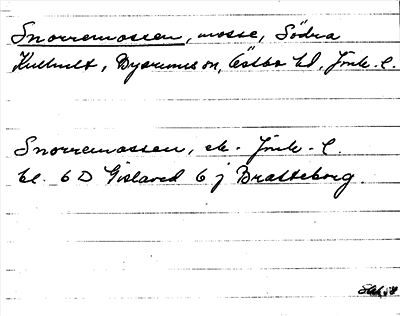 Snorremossen, mosse, Södra
Kulhult, Byarums sn, Östbo hd, Jönk. l.
Snorremossen, ek. Jönk. l.
bl. 6 D Gislaved 6 j Bratteborg.